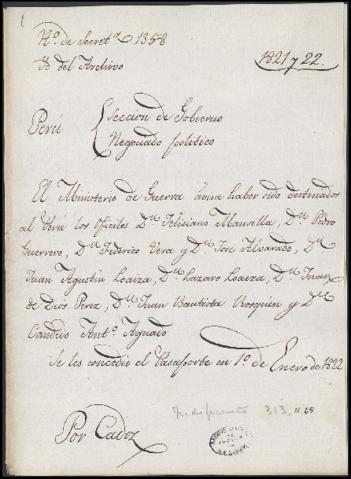 N.º de Secret.ª 1358
Yd. del Archivo
1821 y 22.
Perú
Seccion de Gobierno
Negociado politico
El Ministerio de Guerra avisa haber sido destinados
al Perú los oficiales D.n Feliciano Mansilla, D.n Pedro
Guerrero, D.n Federico Vera y D.n José Alvarado, D.n
Juan Agustin Loaiza, D.n Lazaro Loaiza, D.n Juan
de Dios Perez, D.n Juan Bautista y D.n
Candido Ant.º Aguado
Se les concedió el Pasaporte en 1.º de Enero de 1822
Indiferente 313, n. 69
Por Cadiz